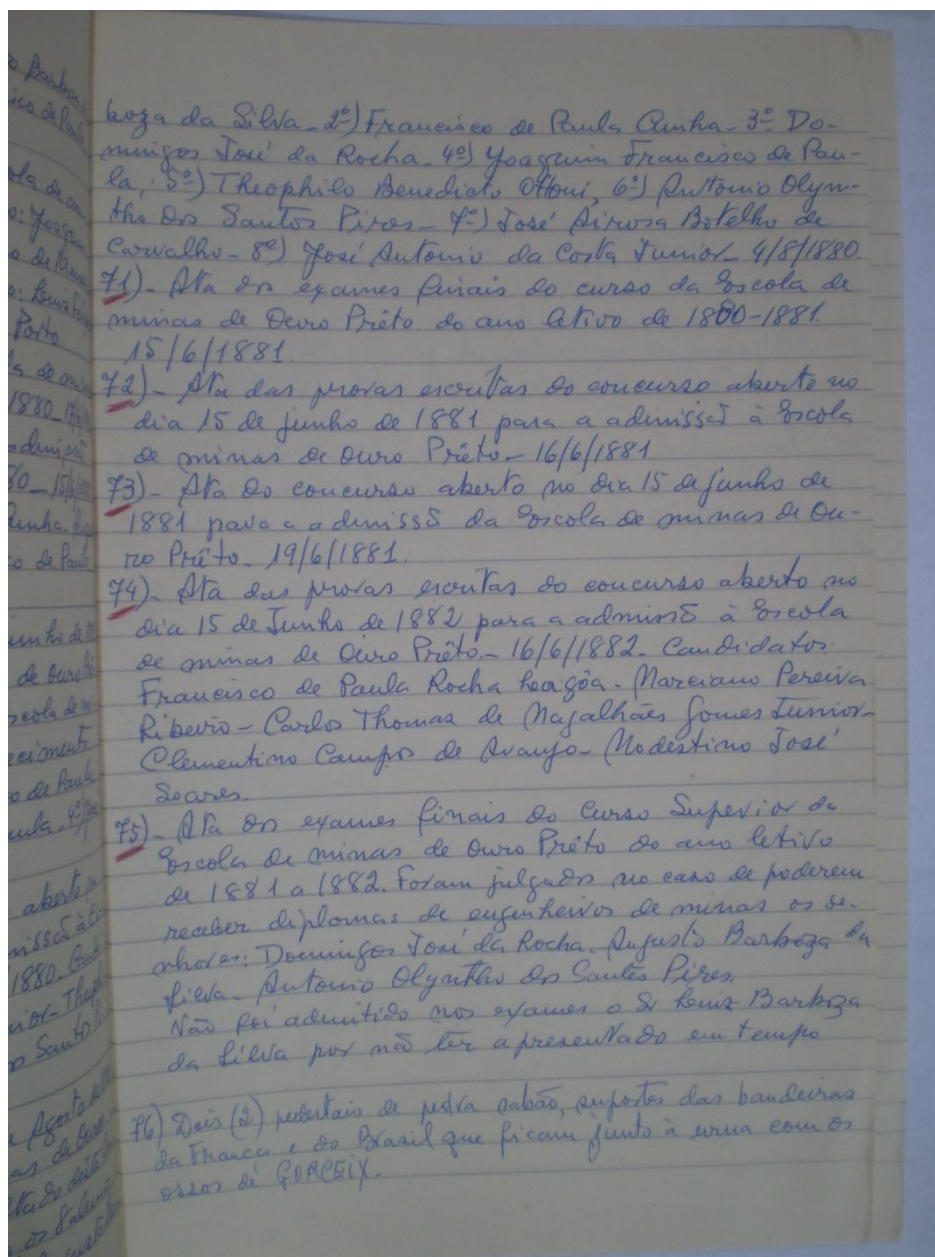 boza da Silva - 2º) Francisco de Paula Cunha - 3º Do-
mingos José da Rocha - 4º) Joaquim Francisco de Pau-
la, 5º) Theophilo Benedicto Ottoni, 6º) Antonio Olyn-
tho dos Santos Pires - 7º) José Airosa Botelho de
Carvalho - 8º) José Antonio da Costa Junior - 4/8/1880.
71) - Ata dos exames finais do curso da Escola de
minas de Ouro Prêto do ano letivo de 1880-1881.
15/6/1881.
72) - Ata das provas escritas do concurso aberto no
dia 15 de junho de 1881 para a admissã à Escola
de minas de Ouro Prêto - 16/6/1881
73) - Ata do concurso aberto no dia 15 de junho de
1881 para a admissõ da Escola de minas de Ou-
ro Prêto. 19/6/1881.
74) - Ata das provas escritas do concurso aberto no
dia 15 de Junho de 1882 para a admissõ à Escola
de minas de Ouro Prêto. - 16/6/1882 - Candidatos.
Francisco de Paula Rocha Leagôa. Marciano Pereira
Ribeiro - Carlos Thomaz de Magalhães Gomes Junior -
Clementino Campos de Araujo - Modestino José
Soares.
75) - Ata dos exames finais do Curso Superior da
Escola de minas de Ouro Prêto do ano letivo
de 1881 a 1882. Foram julgados no caso de poderem
receber diplomas de engenheiros de minas os se-
nhores: Domingos José da Rocha. Augusto Barboza da
Silva - Antonio Olyntho dos Santos Pires.
Não foi admitido nos exames o Sr Luiz Barboza
da Silva por não ter apresentado em tempo
76) Dois (2) pedestais de pedra sabão, suportes das bandeiras
da Franca e do Brasil que ficam junto à urna com os
ossos de GORCEIX.